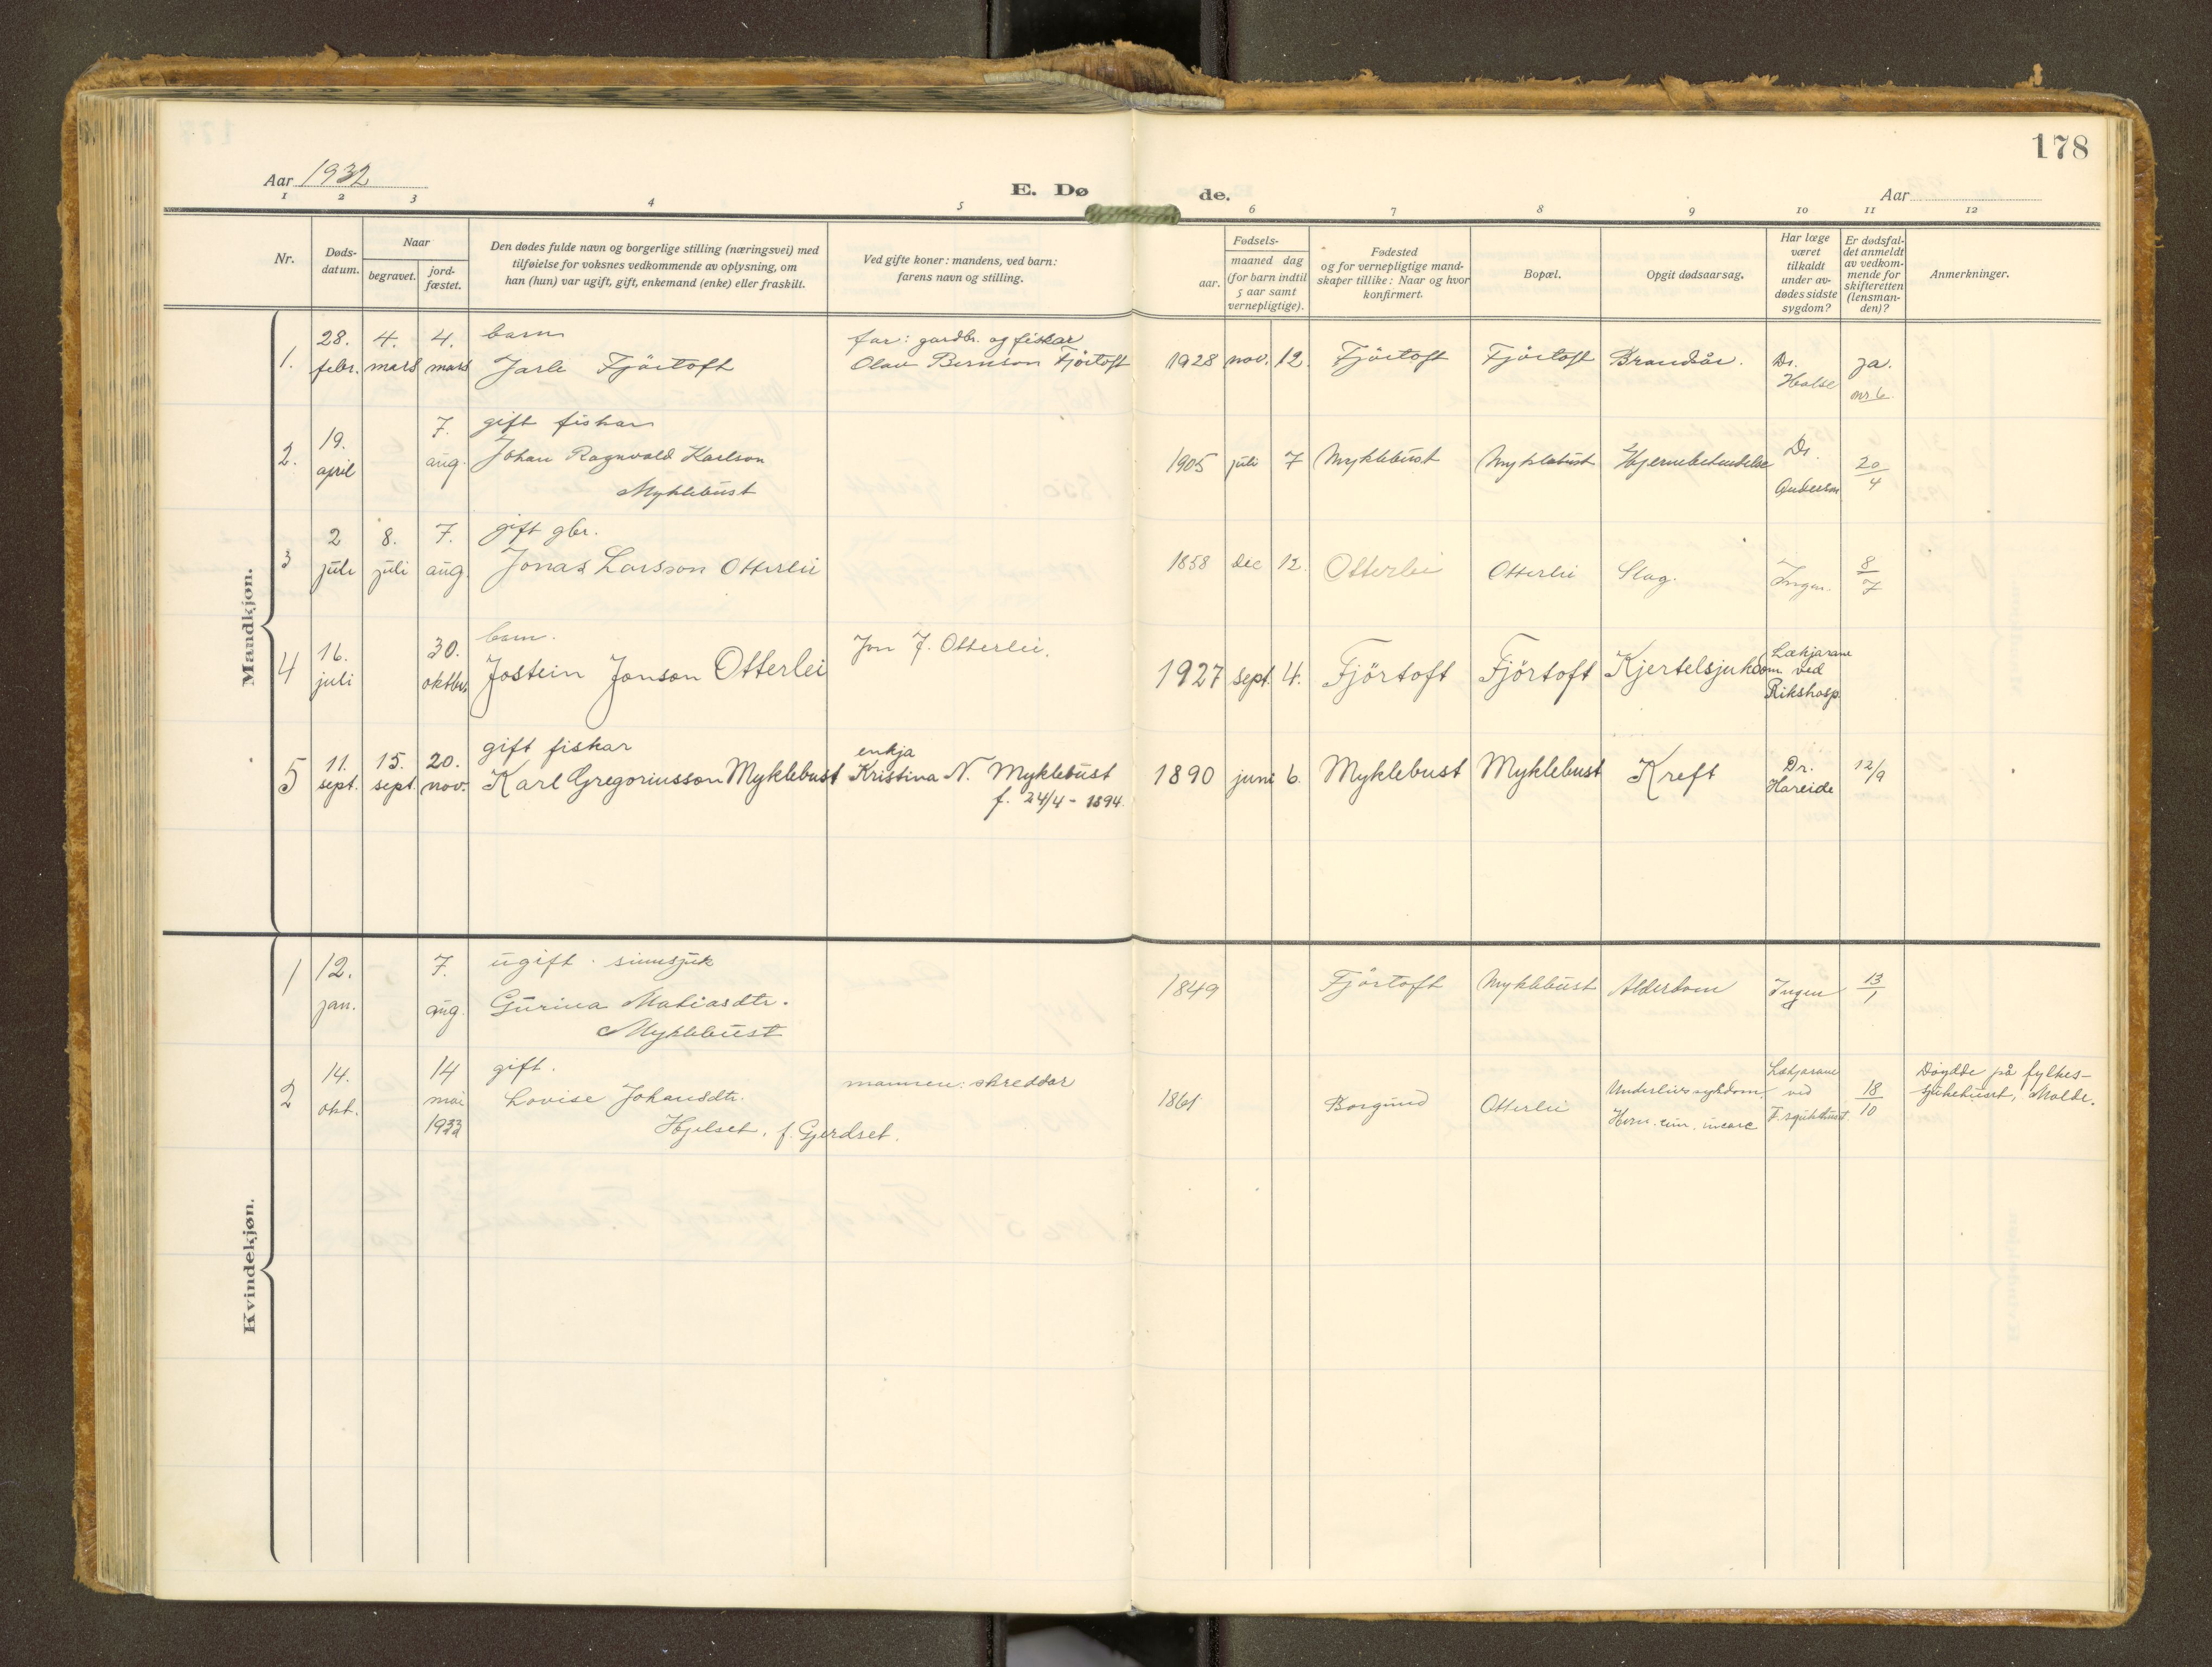 178
Aar 1932
E. Døde.
Aar
1 2 3 4 5 6 7 8 9 10 11 12
Nr.
Døds-
datum.
Naar
begravet.
jord-
fæstet.
Den dødes fulde navn og borgerlige stilling (næringsvei) med
tilføielse for voksnes vedkommende av oplysning, om
han (hun) var ugift, gift, enkemand (enke) eller fraskilt.
Ved gifte koner: mandens, ved barn:
farens navn og stilling.
Fødsels-
aar.
maaned dag
(for barn indtil
5 aar samt
vernepligtige).
Fødested
og for vernepligtige mand-
skaper tillike: Naar og hvor
konfirmert.
Bopæl.
Opgit dødsaarsag.
Har læge
været
tilkaldt
under av-
dødes sidste
sygdom?
Er dødsfal-
det anmeldt
av vedkom-
mende for
skifteretten
(lensman-
den)?
Anmerkninger.
Mandkjøn.
1.
28.
febr.
4.
mars
4.
mars
barn
Jarle Fjörtoft
far: gardbr. og fiskar
Olav Bernson Fjörtoft
1928 nov. 12.
Fjörtoft
Fjörtoft
Brandsår.
Dr.
Halse
ja.
nr. 6.
2.
19.
april
7.
aug.
gift fiskar
Johan Ragnvald Karlson
Myklebust
1905 juli 7
Myklebust
Myklebust
Hjernebetendelse
Dr.
Anderson
20/4
3
2
juli
8.
juli
7.
aug.
gift gbr.
Jonas Larsson Otterlei
1858 dec 12.
Otterlei
Otterlei
Slag.
Ingen.
8/7
4
16.
juli
30.
oktbr.
barn.
Jostein Jonson Otterlei
Jon J. Otterlei.
1927 sept. 4.
Fjörtoft
Fjörtoft
Kjertelsjukdom.
Lækjarane
ved
Rikshosp.
5
11.
sept.
15.
sept.
20.
nov.
gift fiskar
Karl Gregoriusson Myklebust
enkja
Kristina N. Myklebust
f. 24/4 - 1894.
1890 juni 6.
Myklebust
Myklebust
Kreft
Dr.
Hareide
12/9
Kvindekjøn.
1
12.
jan.
7.
aug.
ugift. sinnsjuk
Gurina Matiasdtr.
Myklebust
1849
Fjörtoft
Myklebust
Alderdom
Ingen
13/1
2
14.
okt.
14
mai
1933
gift.
Lovise Johansdtr.
Hjelset, f. Gjerdset.
mannen: skreddar
1861
Borgund
Otterlei
Underlivssykdom.
Lækjarane
ved
F. sjukehuset.
18/10
Döydde på fylkes-
sjukehuset, Molde.